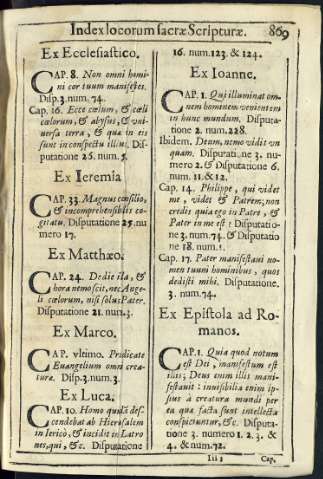 Index locorum sacræ Scripturæ. 869
Ex Ecclesiastico.
CAP. 8. Non omni homi-
ni cor tuum manifestes.
Disp. 3. num. 74.
Cap. 16. Ecce cœlum, & cœli
cœlorum, & abysus, & vni-
uersa terra, & quæ in eis
sunt in conspectu illius. Dis-
putatione 25. num. 5.
Ex Ieremia
CAP. 33. Magnus consilio,
& incomprehensibilis co-
gitatu. Disputatione 25. nu
mero 17.
Ex Matthæo.
CAP. 24. De die illa, &
hora nemo scit, nec Ange-
li cœlorum, nisi solus Pater.
Disputatione 21. num. 3.
Ex Marco.
CAP. vltimo. Prædicate
Euangelium omni crea-
turæ. Disp. 3. num. 3.
Ex Luca.
CAP. 10. Homo quidã des-
cendebat ab Hierusalem
in Ierico, & incidit in Latro
nes, qui, &c. Disputatione
16. num. 123. & 124.
Ex Ioanne.
CAP. 1. Qui illuminat om-
nem hominem venientem
in hunc mundum. Disputa-
tione 2. num. 228.
Ibidem. Deum, nemo vidit vn
quam. Disputati.ne 3. nu-
mero 2. & Disputatione 6.
num. 11. & 12.
Cap. 14. Philippe, qui videt
me, videt & Patrem; non
credis quia ego in Patre, &
Pater in me est? Disputatio-
ne 3. num. 74. & Disputatio
ne 18. num. 1.
Cap. 17. Pater manifestaui no-
men tuum hominibus, quos
dedisti mihi. Disputatione.
3. num. 74.
Ex Epistola ad Ro-
manos.
CAP. 1. Quia quod notum
est Dei, manifestum est
illis; Deus enim illis mani-
festauit: inuisibilia enim ip-
sius à creatura mundi per
ea quæ facta sunt intellecta
conspiciuntur, &c. Disputa-
tione 3. numero 1. 2. 3. &
4. & num. 72.
Iii 3 Cap.